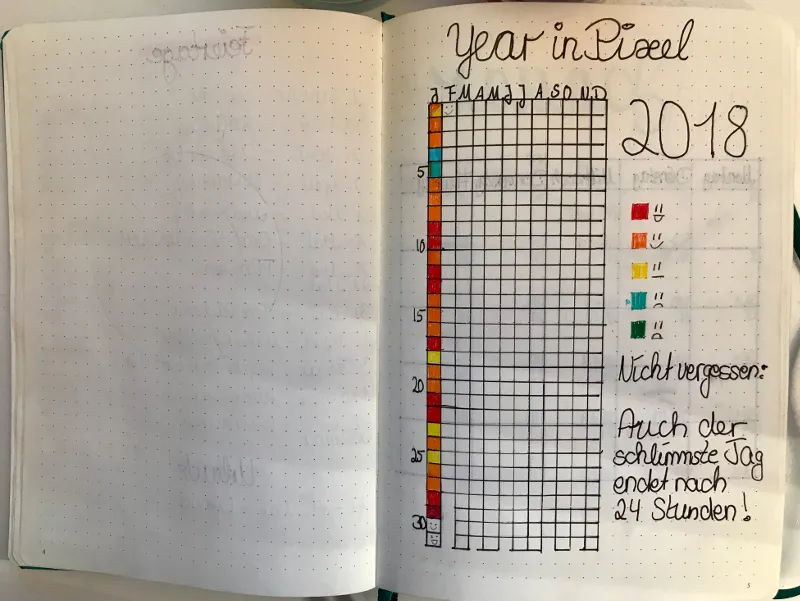 Feiertage
Urlaub
4
Year in Pixel
J F M A M J J A S O N D
2018
5
10
15
20
25
30
Nicht vergessen:
Auch der
schlimmste Tag
endet nach
24 Stunden!
5